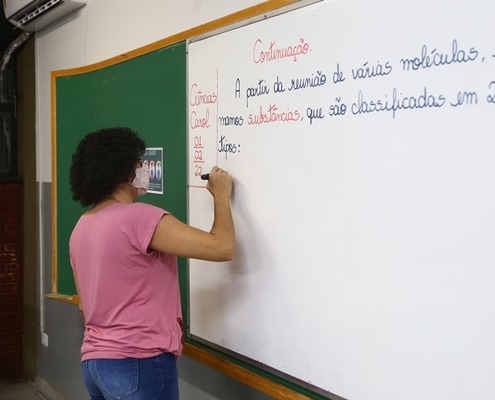 Continuação.
Ciências
Carol
01
02
22
A partir da reunião de várias moléculas,
mamos substâncias, que são classificadas em 2
tipos: